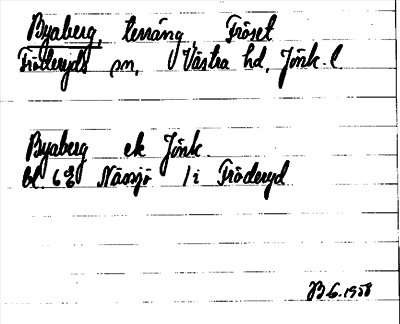 Byaberg, terräng, Fröset
Fröderyds sn, Västra hd, Jönk. l.
Byaberg ek Jönk.
bl. 63 Nässjö 1i Fröderyd
1958